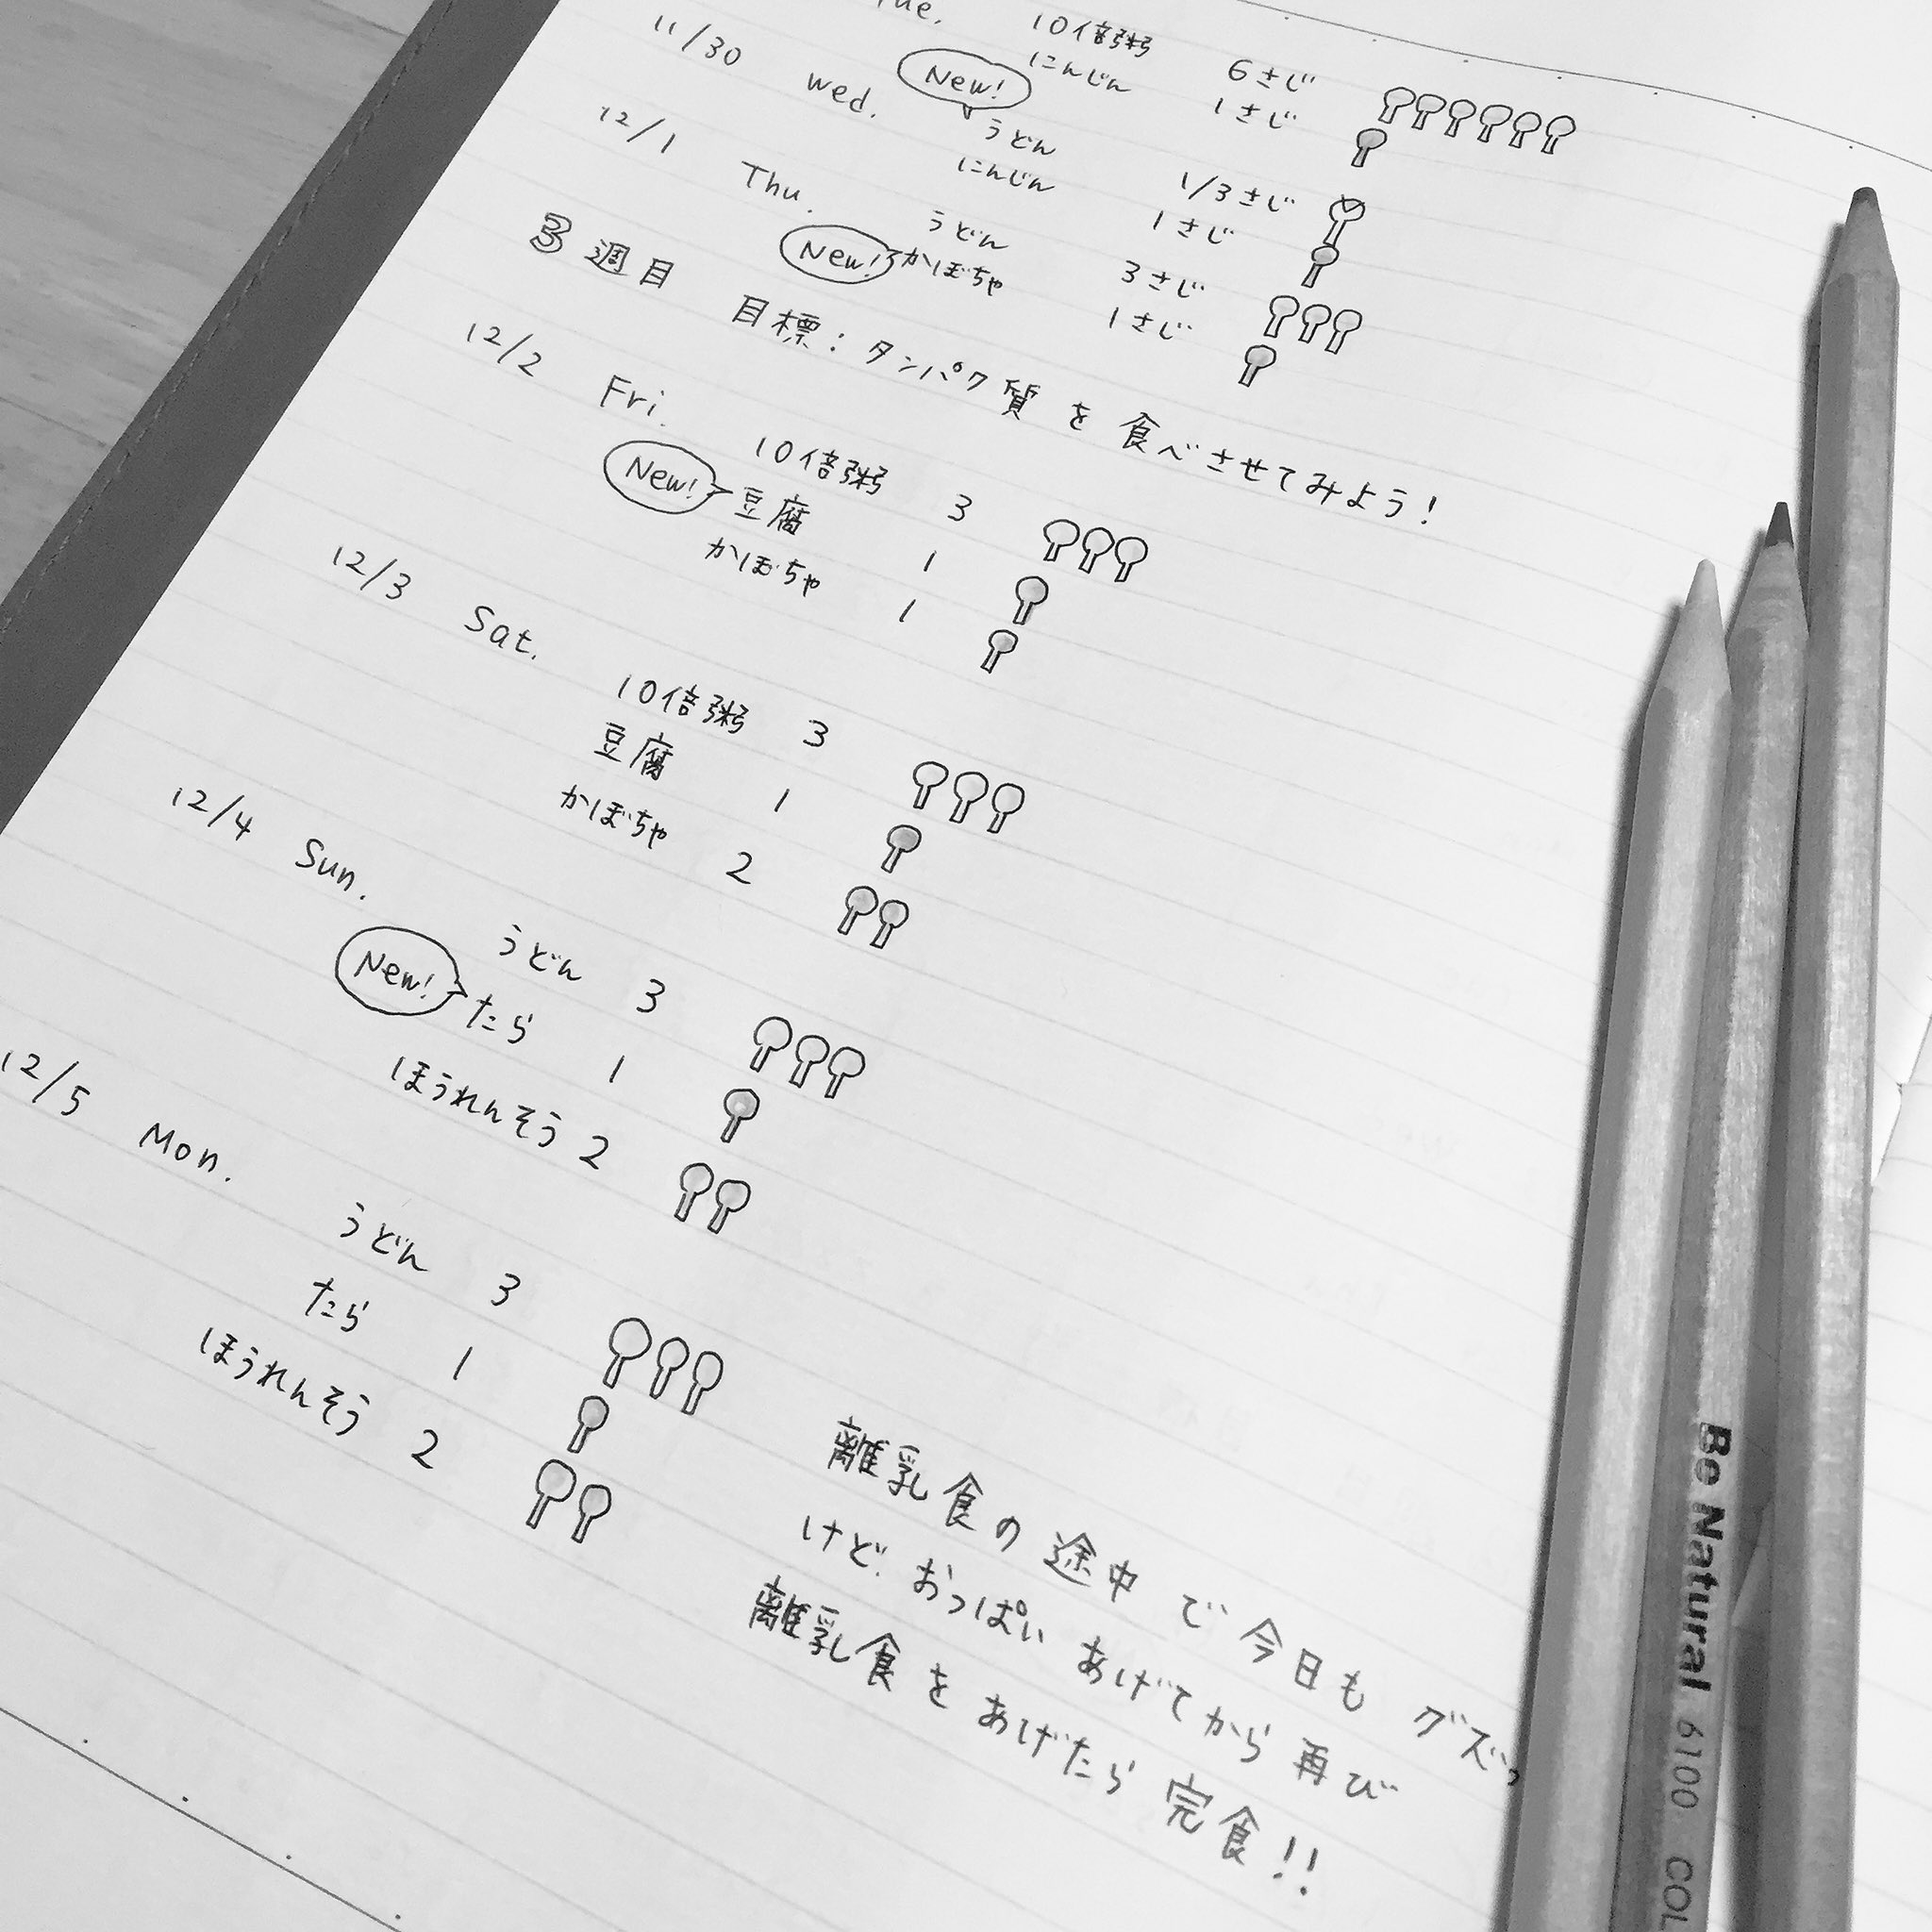 10倍粥 6さじ
にんじん 1さじ
11/30 Wed.
New!
うどん 1/3さじ
にんじん 1さじ
12/1 Thu.
うどん 3さじ
New! かぼちゃ 1さじ
3週目 目標:タンパク質を食べさせてみよう!
12/2 Fri.
10倍粥 3
New! 豆腐 1
かぼちゃ 1
12/3 Sat.
10倍粥 3
豆腐 1
かぼちゃ 2
12/4 Sun.
うどん 3
New! たら 1
ほうれんそう 2
12/5 Mon.
うどん 3
たら 1
ほうれんそう 2
離乳食の途中で今日もグズっ
けど、おっぱいあげてから再び
離乳食をあげたら完食!!
Be Natural 6100